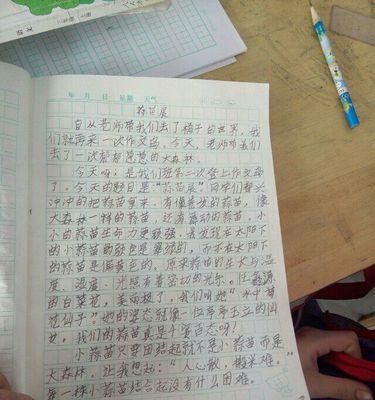 年 月 日 星期 天气
蒜苗展
自从老师带我们去了橘子的世界,我
们就再来一次作文盛。今天,老师带我们
去了一次郁郁葱葱的大森林。
今天呀,是我们班第二次登上作文盛
了。今天的题目是“蒜苗展”同学们都兴
冲冲的把蒜苗拿来。有像卷发的蒜苗,像
大森林一样的蒜苗,还有舞动的蒜苗。小
小的蒜苗生命力更顽强。我发现在太阳下
的小蒜苗的颜色是翠绿的,而不在太阳下
的蒜苗是偏黄色的。原来蒜苗的生长与温
度、湿度、光照有着密切的光系。任
的白菜花,美丽极了,我们叫她“水中菊
花仙子”。她的姿态就像一位亭亭玉立的仙
女。我们的蒜苗真是千姿百态呀!
小蒜苗只要团结起就不是小蒜苗而是
大森林。让我想起:“人心散,搬米难。”
每一株小蒜苗结合起没有什么困难。